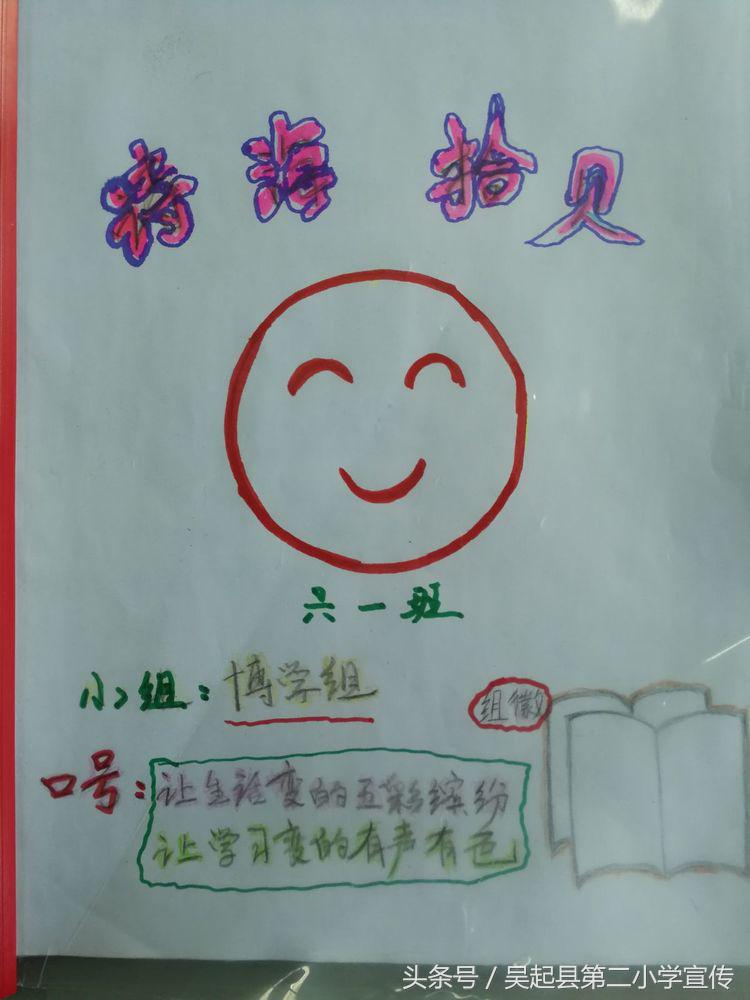 诗海拾贝
六一班
小组：博学组
组徽
口号：让生活变的五彩缤纷
让学习变的有声有色
头条号／吴起县第二小学宣传